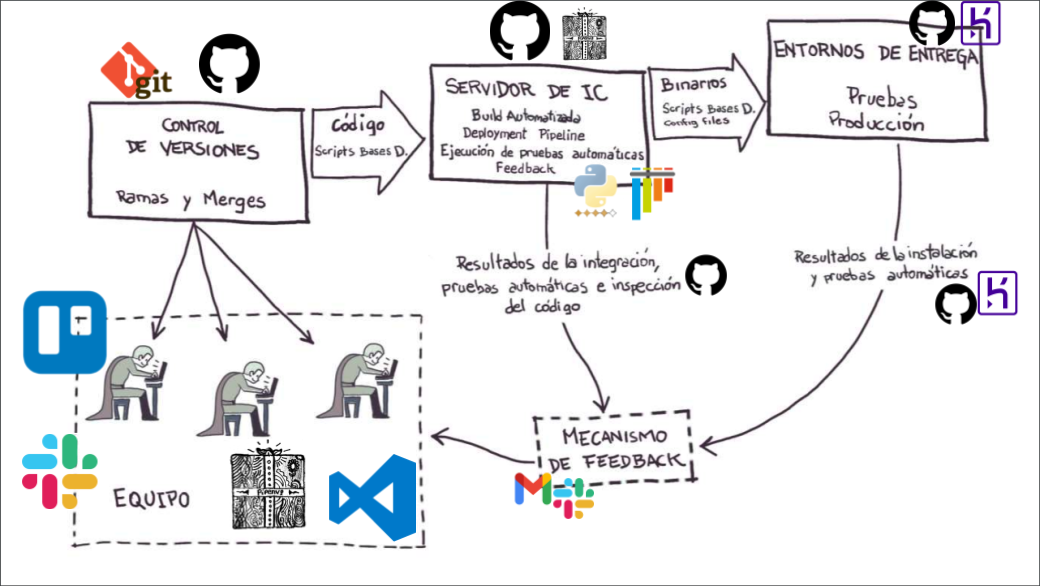 git
CONTROL
DE VERSIONES
Ramas y Merges
Código
Scripts Bases D.
SERVIDOR DE IC
Build Automatizada
Deployment Pipeline
Ejecución de pruebas automáticas
Feedback
Binarios
Scripts Bases D.
Config Files
ENTORNOS DE ENTREGA
Pruebas
Producción
Resultados de la integración,
pruebas automáticas e inspección
del código
Resultados de la instalación
y pruebas automáticas
MECANISMO
DE FEEDBACK
EQUIPO
Pipenv